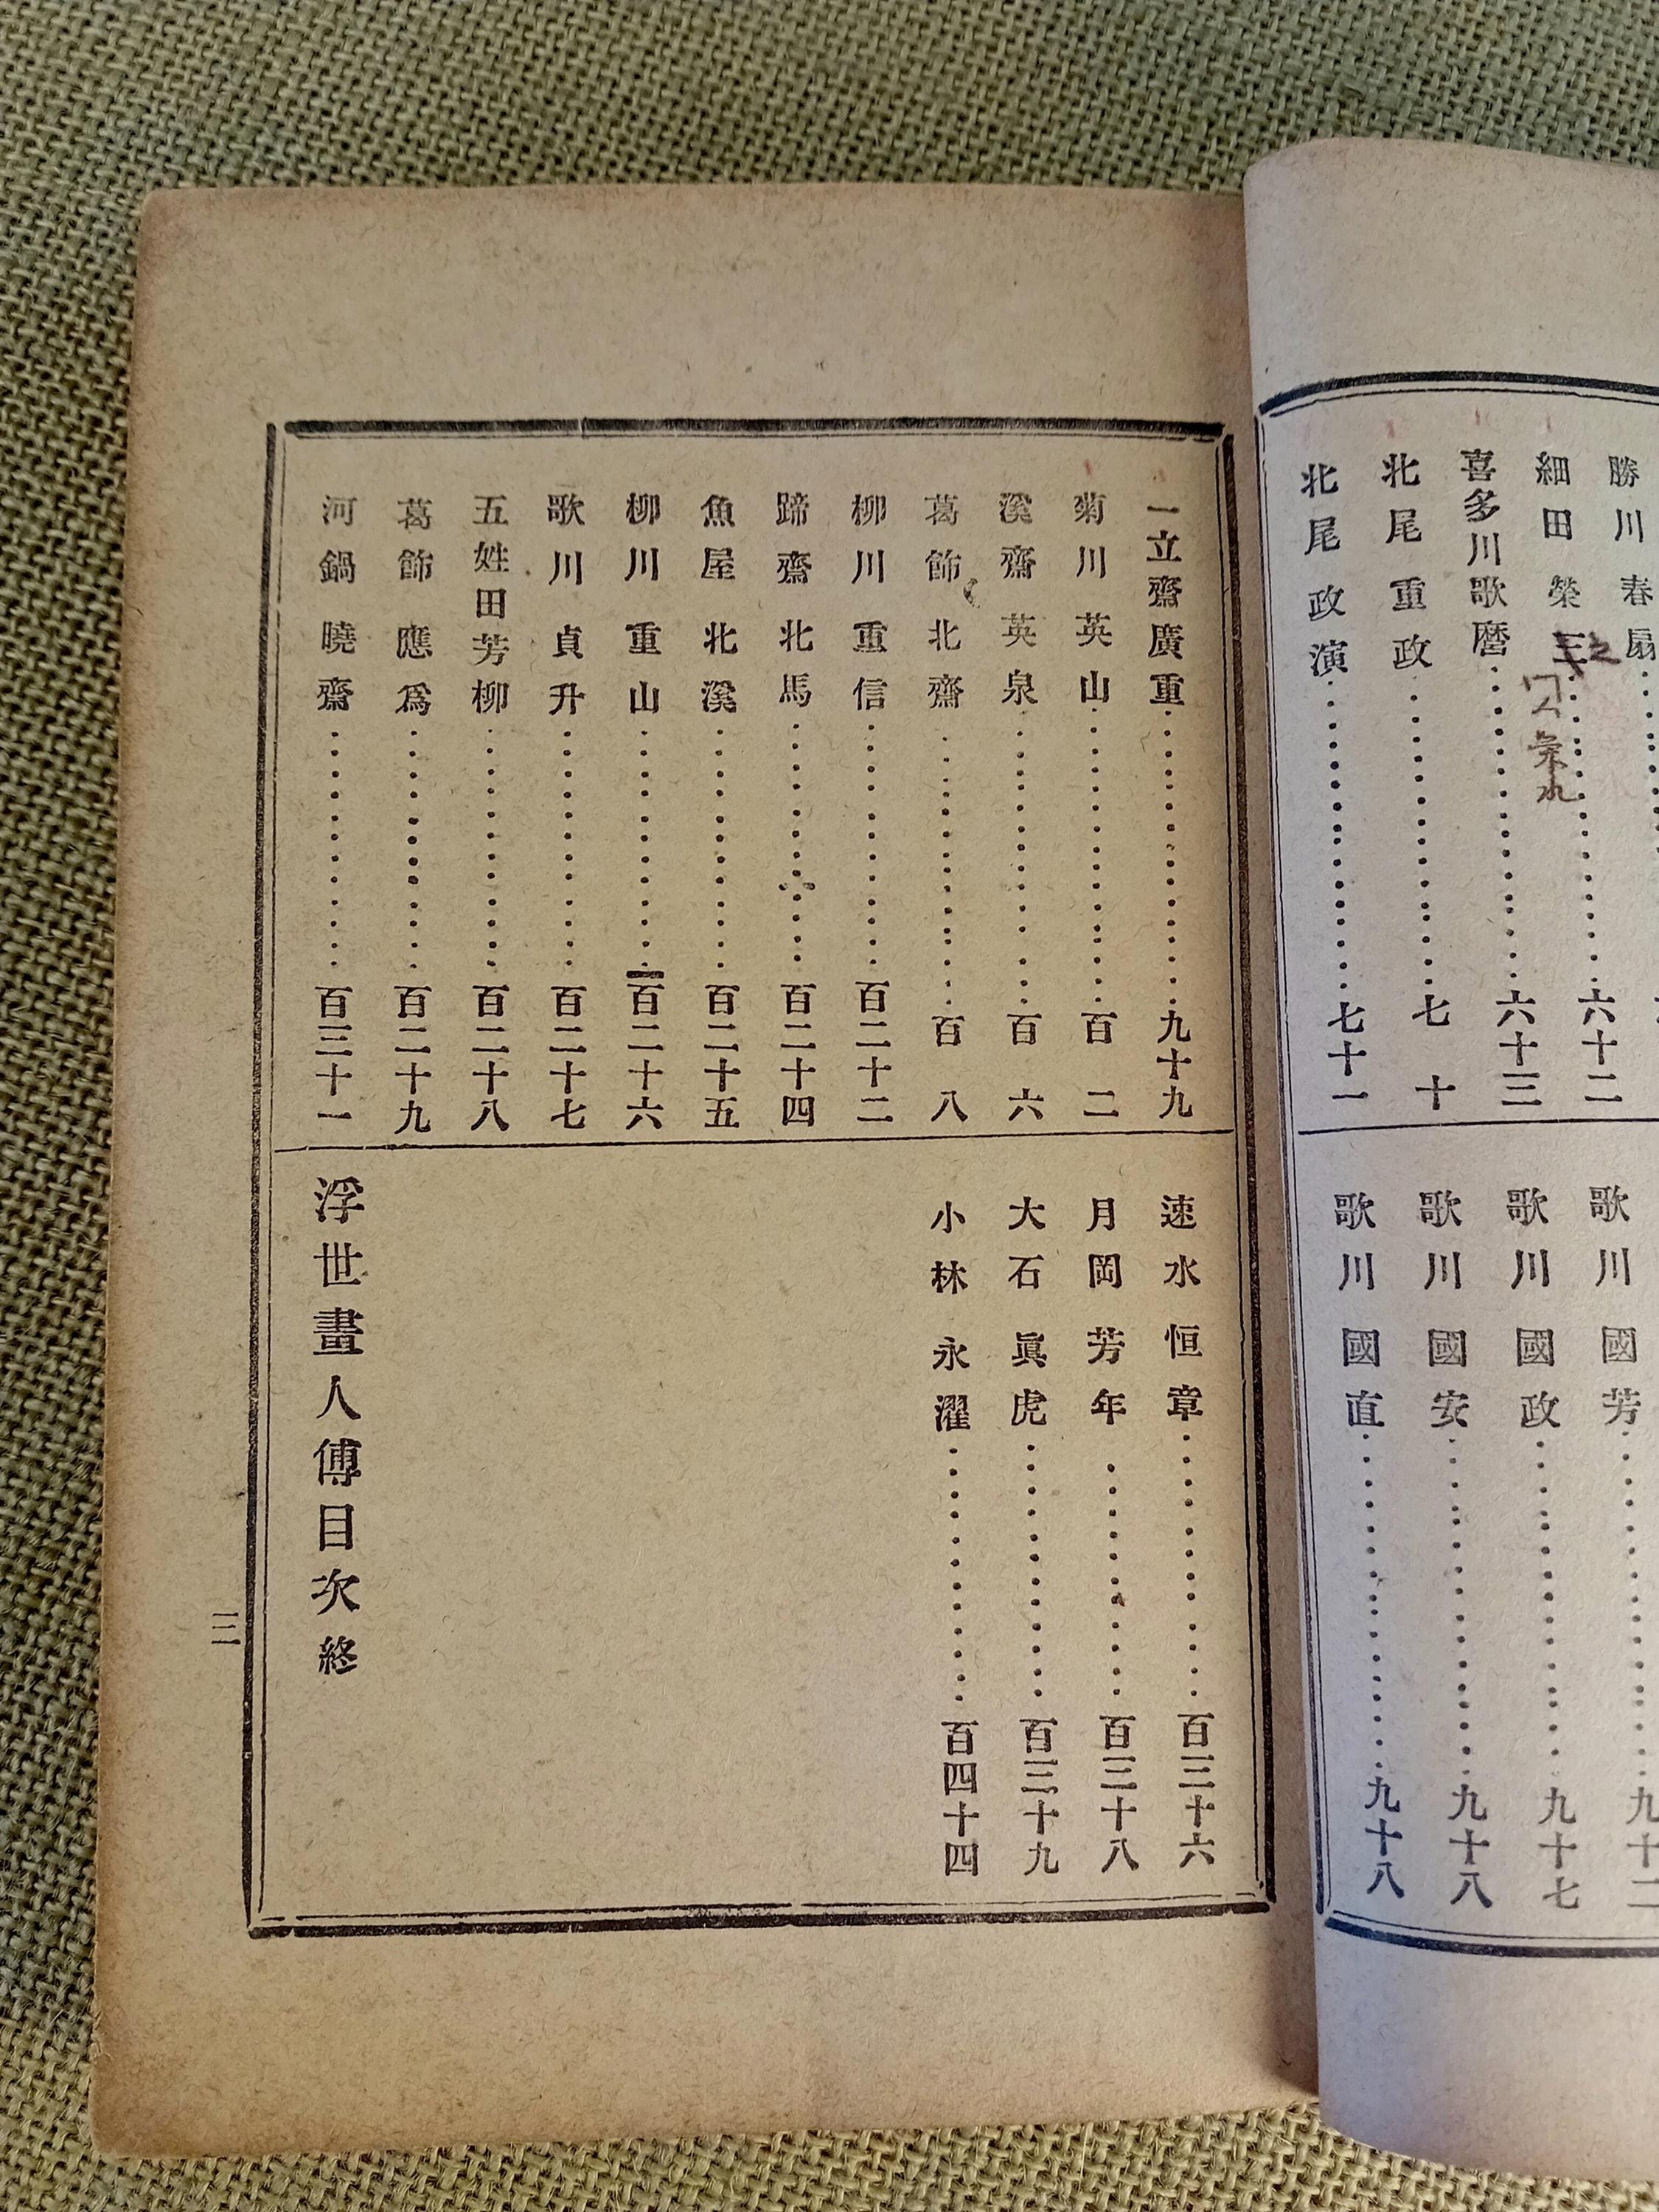 勝川春扇
細田榮
六十二
喜多川歌麿……六十三
北尾重政……七十
北尾政演……七十一
歌川國芳……九十二
歌川國政……九十七
歌川國安……九十八
歌川國直……九十八
一立齋廣重……九十九
菊川英山……百二
溪齋英泉……百六
葛飾北齋……百八
柳川重信……百二十二
蹄齋北馬……百二十四
魚屋北溪……百二十五
柳川重山……百二十六
歌川貞升……百二十七
五姓田芳柳……百二十八
葛飾應爲……百二十九
河鍋曉齋……百三十一
速水恒章……百三十六
月岡芳年……百三十八
大石眞虎……百三十九
小林永濯……百四十四
浮世畫人傳目次終
三